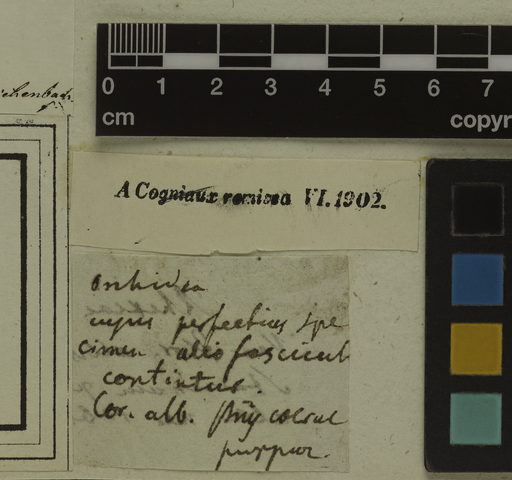 0 1 2 3 4 5 6 7
cm copyr
A Cogniaux remissa VI.1902.
Orchidea
cujus perfectius spe
cimen alio fascicul
continetur.
Cor. alb. coerul
purpur.